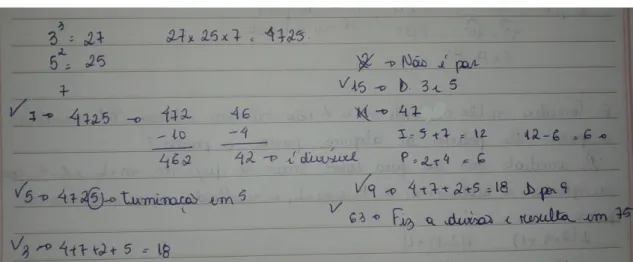 3³ = 27    27 x 25 x 7 = 4725
5² = 25
7
2 → Não é par
✓15 → D. 3 e 5
✓7 → 4725 → 472    46
-10    -4
462    42 → é divisível
11 → 47
I = 5 + 7 = 12    12 - 6 = 6
P = 2 + 4 = 6
✓5 → 4725 → Terminação em 5
✓9 → 4+7+2+5 = 18 D por 9
✓63 → Fiz a divisão e resulta em 75
✓3 → 4+7+2+5 = 18